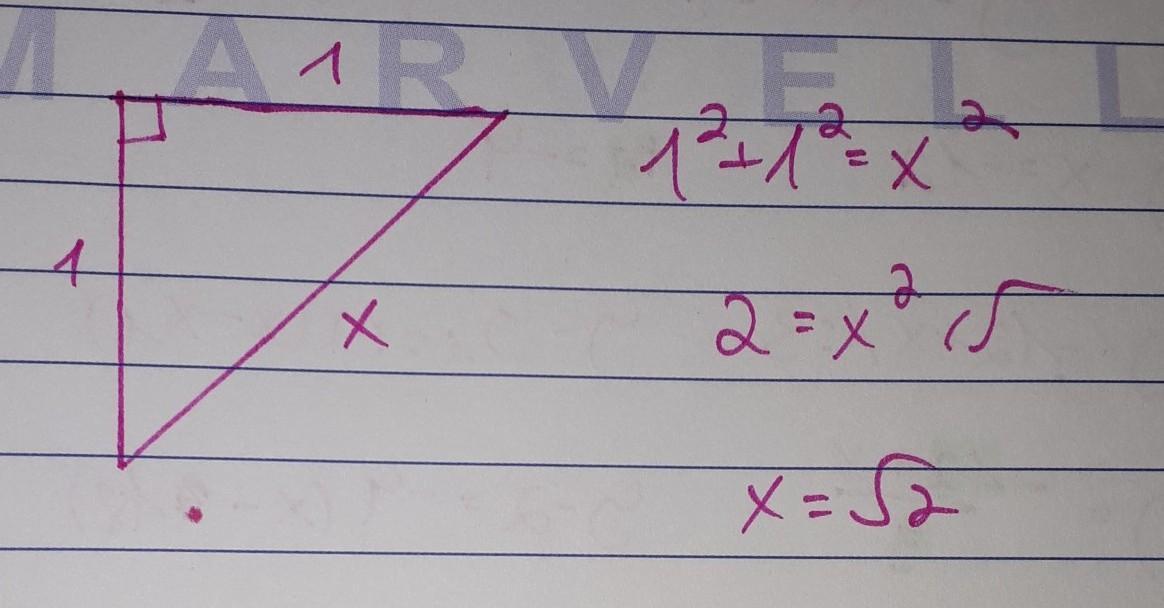 MARVELL
1
1² + 1² = x²
1
2 = x² /√
x
x = √2